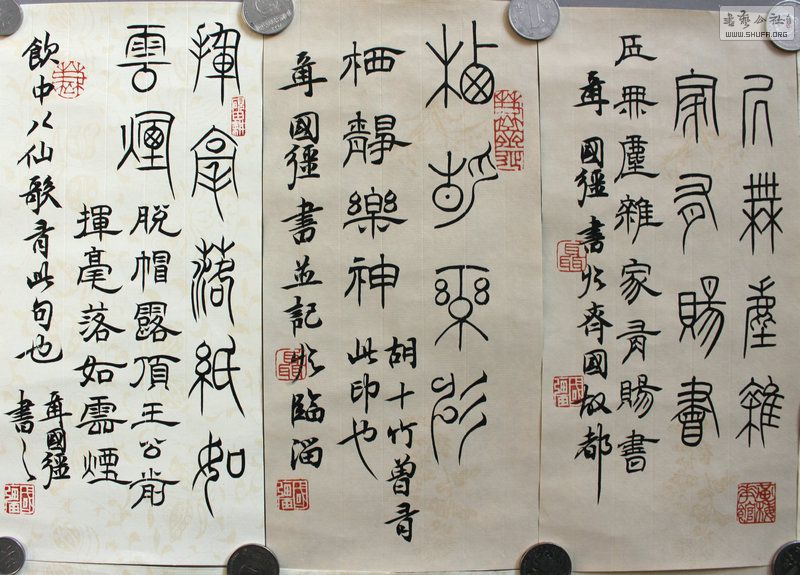 無塵雜
家有賜書
無塵雜家有賜書
國彊書於齊國故都
栖靜樂神
栖靜樂神
胡十竹曾有
此印也
國彊書並記於臨淄
揮毫落紙如
雲煙
脫帽露頂王公前
揮毫落如雲煙
飲中八仙歌有此句也
國彊
書之
書藝公社
WWW.SHUFA.ORG